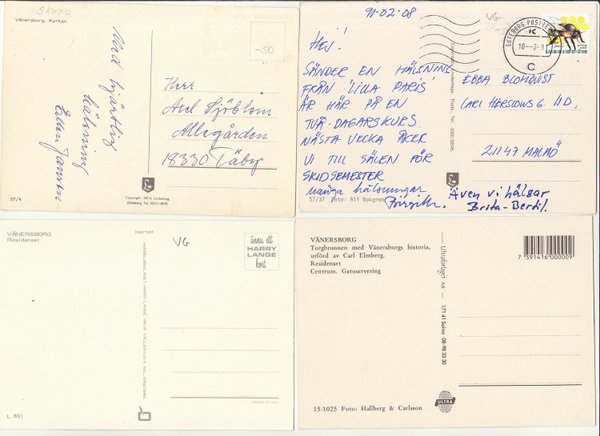 Skara
Vänersborg, Kyrkan
-50
Med hjärtlig
hälsning
Herr
Axel Sjöblom
Allégården
18330 Täby
57/4
91-02-08
VG
GÖTEBORG
C
Hej!
SÄNDER EN HÄLSNING
FRÅN "LILLA PARIS"
ÄR HÄR PÅ EN
TVÅ-DAGARSKURS
NÄSTA VECKA ÅKER
VI TILL SÄLEN FÖR
SKIDSEMESTER
många hälsningar
EBBA BLOMQVIST
CARL HERSLOWS G 11D,
21147 MALMÖ
Även vi hälsar
Brita-Bertil.
57/37 Foto: Alf Bokgren
VÄNERSBORG
Residenset
Copyright
VG
ännu ett
HARRY
LANGE
kort
L. 801
VÄNERSBORG
Torgbrunnen med Vänersborgs historia,
utförd av Carl Elmberg.
Residenset
Centrum. Gatuservering
Ultraförlaget AB — 171 41 Solna 08-98 33 30
7 391416 000009
15-1025 Foto: Hallberg & Carlsson
ULTRA